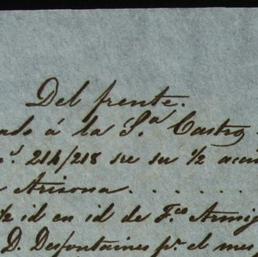 Del frente.
ado á la S.ª Castro
214/218 de su ½ acc
Arizona . . . . . .
½ id en id de F.co Armij
D. Desfontaines p.r el mes